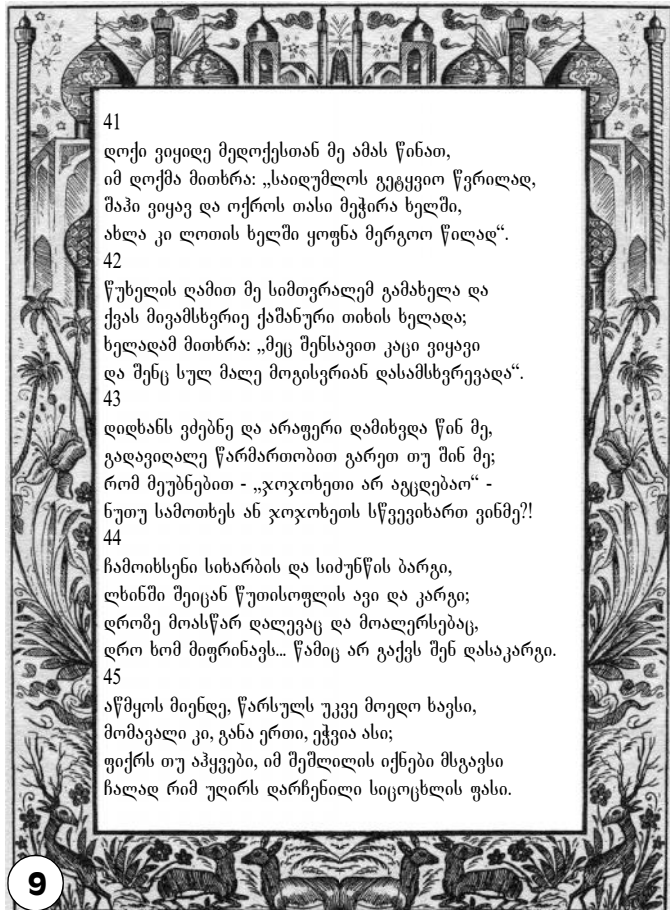 41
დოქი ვიყიდე მედოქესთან მე ამას წინათ,
იმ დოქმა მითხრა: „საიდუმლოს გეტყვიო წვრილად,
შაჰი ვიყავ და ოქროს თასი მეჭირა ხელში,
ახლა კი ლოთის ხელში ყოფნა მერგოო წილად“.
42
წუხელის ღამით მე სიმთვრალემ გამახელა და
ქვას მივამსხვრიე ქაშანური თიხის ხელადა;
ხელადამ მითხრა: „მეც შენსავით კაცი ვიყავი
და შენც სულ მალე მოგისვრიან დასამსხვრევადა“.
43
დიდხანს ვძებნე და არაფერი დამიხვდა წინ მე,
გადავიღალე წარმართობით გარეთ თუ შინ მე;
რომ მეუბნებით - „ჯოჯოხეთი არ აგცდებაო“ -
ნუთუ სამოთხეს ან ჯოჯოხეთს სწვევიხართ ვინმე?!
44
ჩამოიხსენი სიხარბის და სიძუნწის ბარგი,
ლხინში შეიცან წუთისოფლის ავი და კარგი;
დროზე მოასწარ დალევაც და მოალერსებაც,
დრო ხომ მიფრინავს... წამიც არ გაქვს შენ დასაკარგი.
45
აწმყოს მიენდე, წარსულს უკვე მოედო ხავსი,
მომავალი კი, განა ერთი, ეჭვია ასი;
ფიქრს თუ აჰყვები, იმ შეშლილის იქნები მსგავსი
ჩალად რომ უღირს დარჩენილი სიცოცხლის ფასი.
9